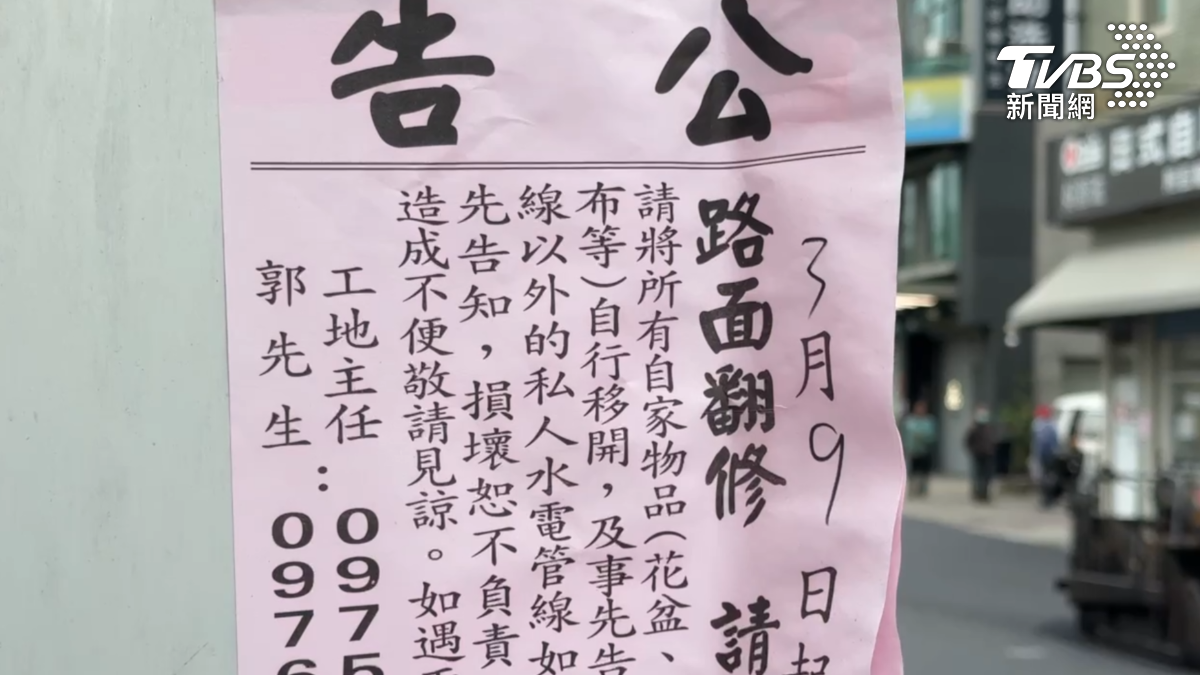 公告
3月9日起
路面翻修 請
請將所有自家物品(花盆、
布等)自行移開，及事先告
線以外的私人水電管線如
先告知，損壞恕不負責
造成不便敬請見諒。如遇
工地主任：0975
郭先生 0976
TVBS
新聞網
日式自